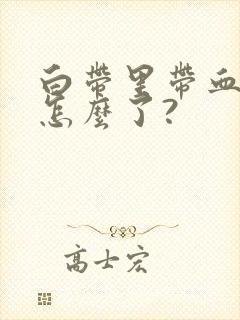 白帶里帶血
怎麼了?
高士宏